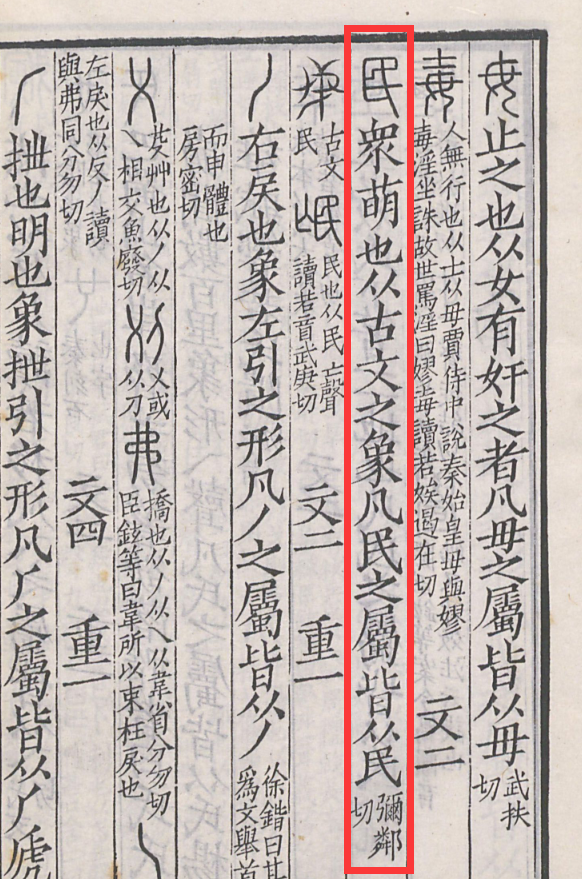 毋止之也从女有奸之者凡毋之屬皆从毋武扶切
毐人無行也从士从毋賈侍中說秦始皇母與嫪毐淫坐誅故世罵淫曰嫪毐讀若娭遏在切 文二
民眾萌也从古文之象凡民之屬皆从民彌鄰切
古文民 氓民也从民亡聲讀若盲武庚切 文二 重一
丿右戾也象左引之形凡丿之屬皆从丿徐鍇曰其為文舉首
而申體也房密切
乂芟艸也从丿从乀相交魚廢切 刈乂或从刀 弗撟也从丿从乀从韋省分勿切臣鉉等曰韋所以束枉戾也 乀
左戾也从反丿讀與弗同分勿切 文四 重一
𠂆抴也明也象抴引之形凡𠂆之屬皆从𠂆虒